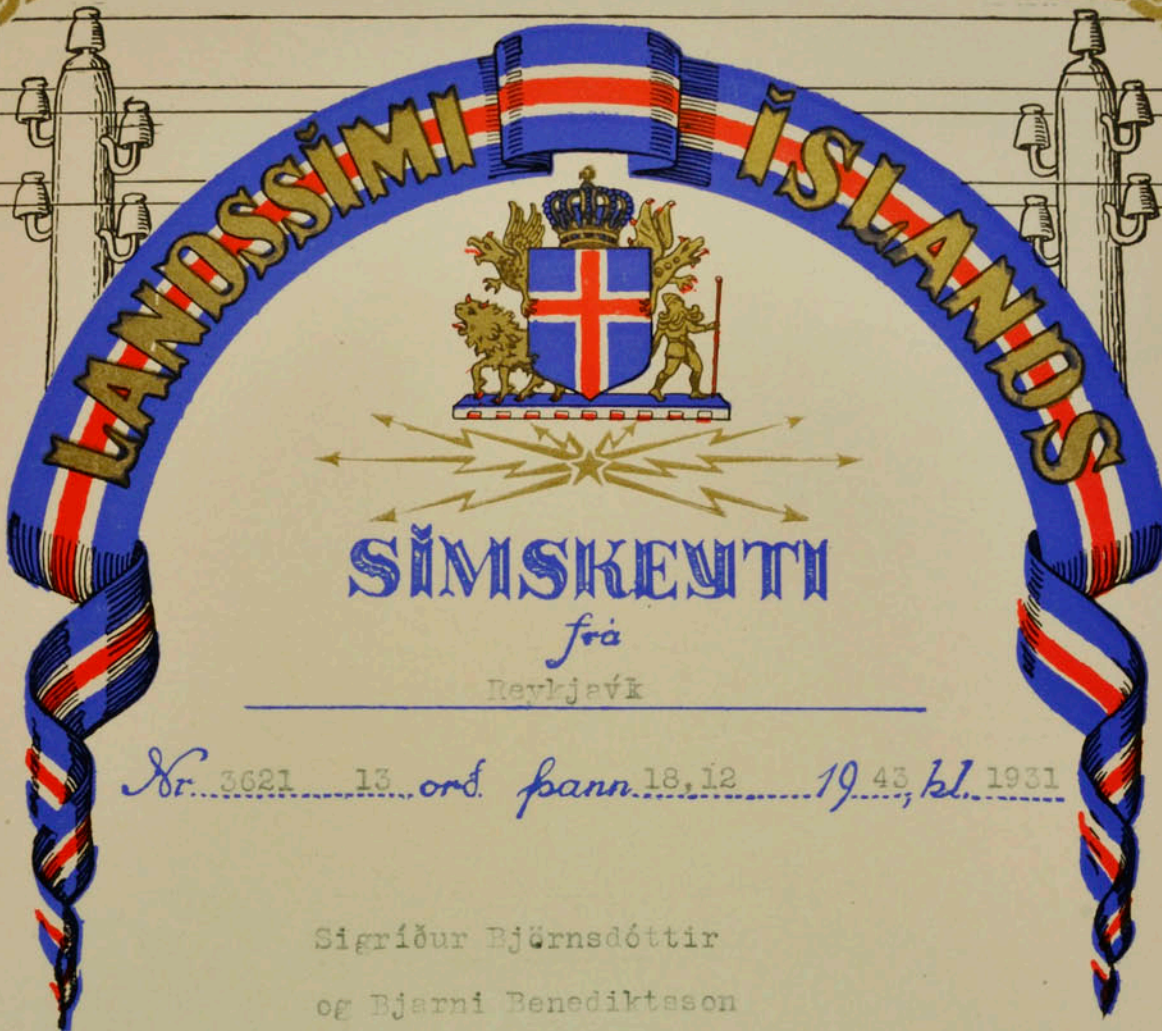 LANDSSÍMI ÍSLANDS
SÍMSKEYTI
frá
Reykjavík
Nr. 3621 13 orð. þann 18,12 19 43, kl. 1931
Sigríður Björnsdóttir
og Bjarni Benediktsson